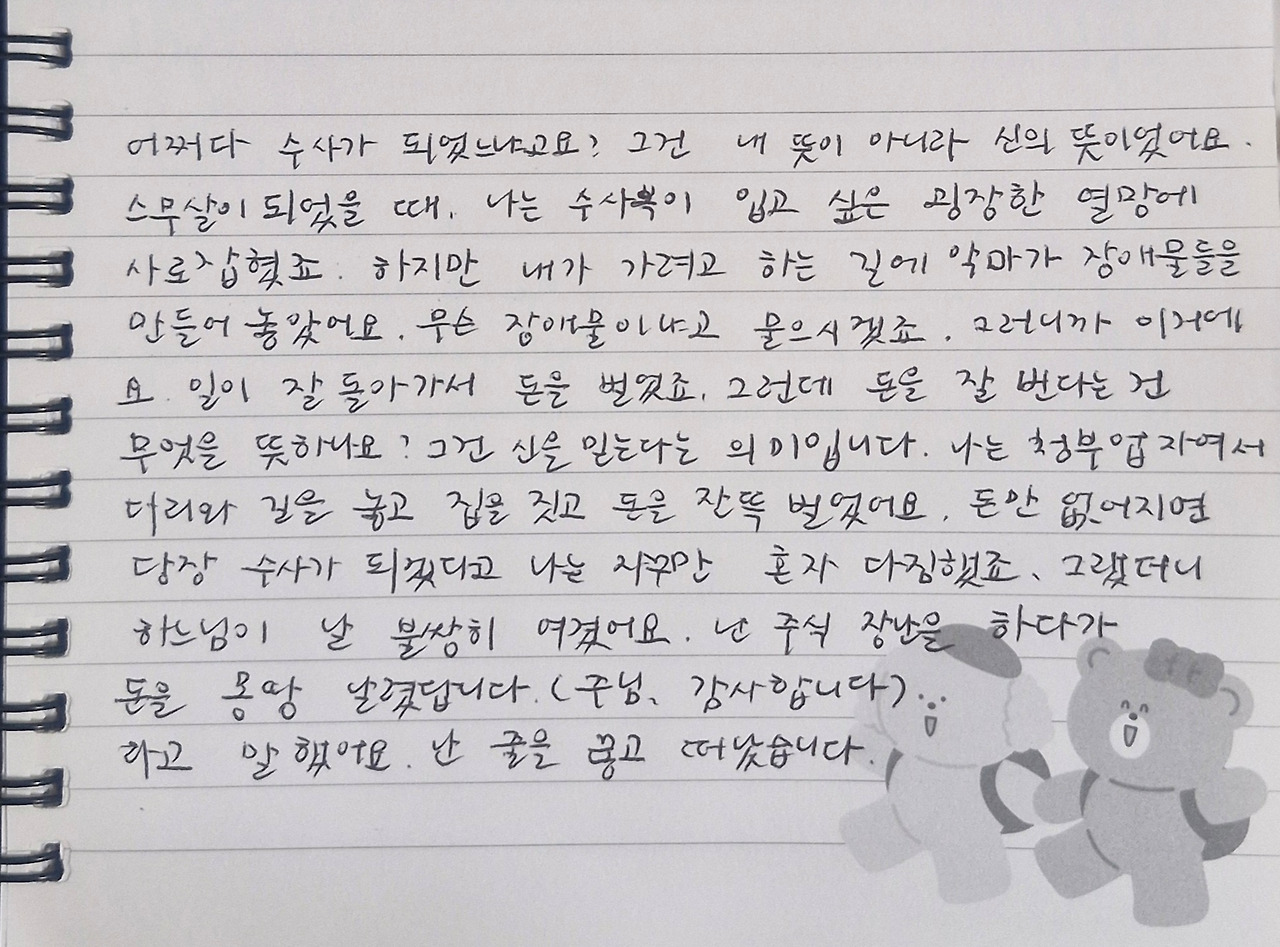 어쩌다 수사가 되었느냐고요? 그건 내 뜻이 아니라 신의 뜻이었어요.
스무살이 되었을 때, 나는 수사복이 입고 싶은 굉장한 열망에
사로잡혔죠. 하지만 내가 가려고 하는 길에 악마가 장애물들을
만들어 놓았어요. 무슨 장애물이냐고 물으시겠죠. 그러니까 이거예
요. 일이 잘 돌아가서 돈을 벌었죠. 그런데 돈을 잘 번다는 건
무엇을 뜻하나요? 그건 신을 믿는다는 의미입니다. 나는 청부업자여서
다리와 길을 놓고 집을 짓고 돈을 잔뜩 벌었어요. 돈만 없어지면
당장 수사가 되겠다고 나는 자꾸만 혼자 다짐했죠. 그랬더니
하느님이 날 불쌍히 여겼어요. 난 주식 장난을 하다가
돈을 몽땅 날렸답니다. (주님, 감사합니다)
하고 말했어요. 난 줄을 끊고 떠났습니다.